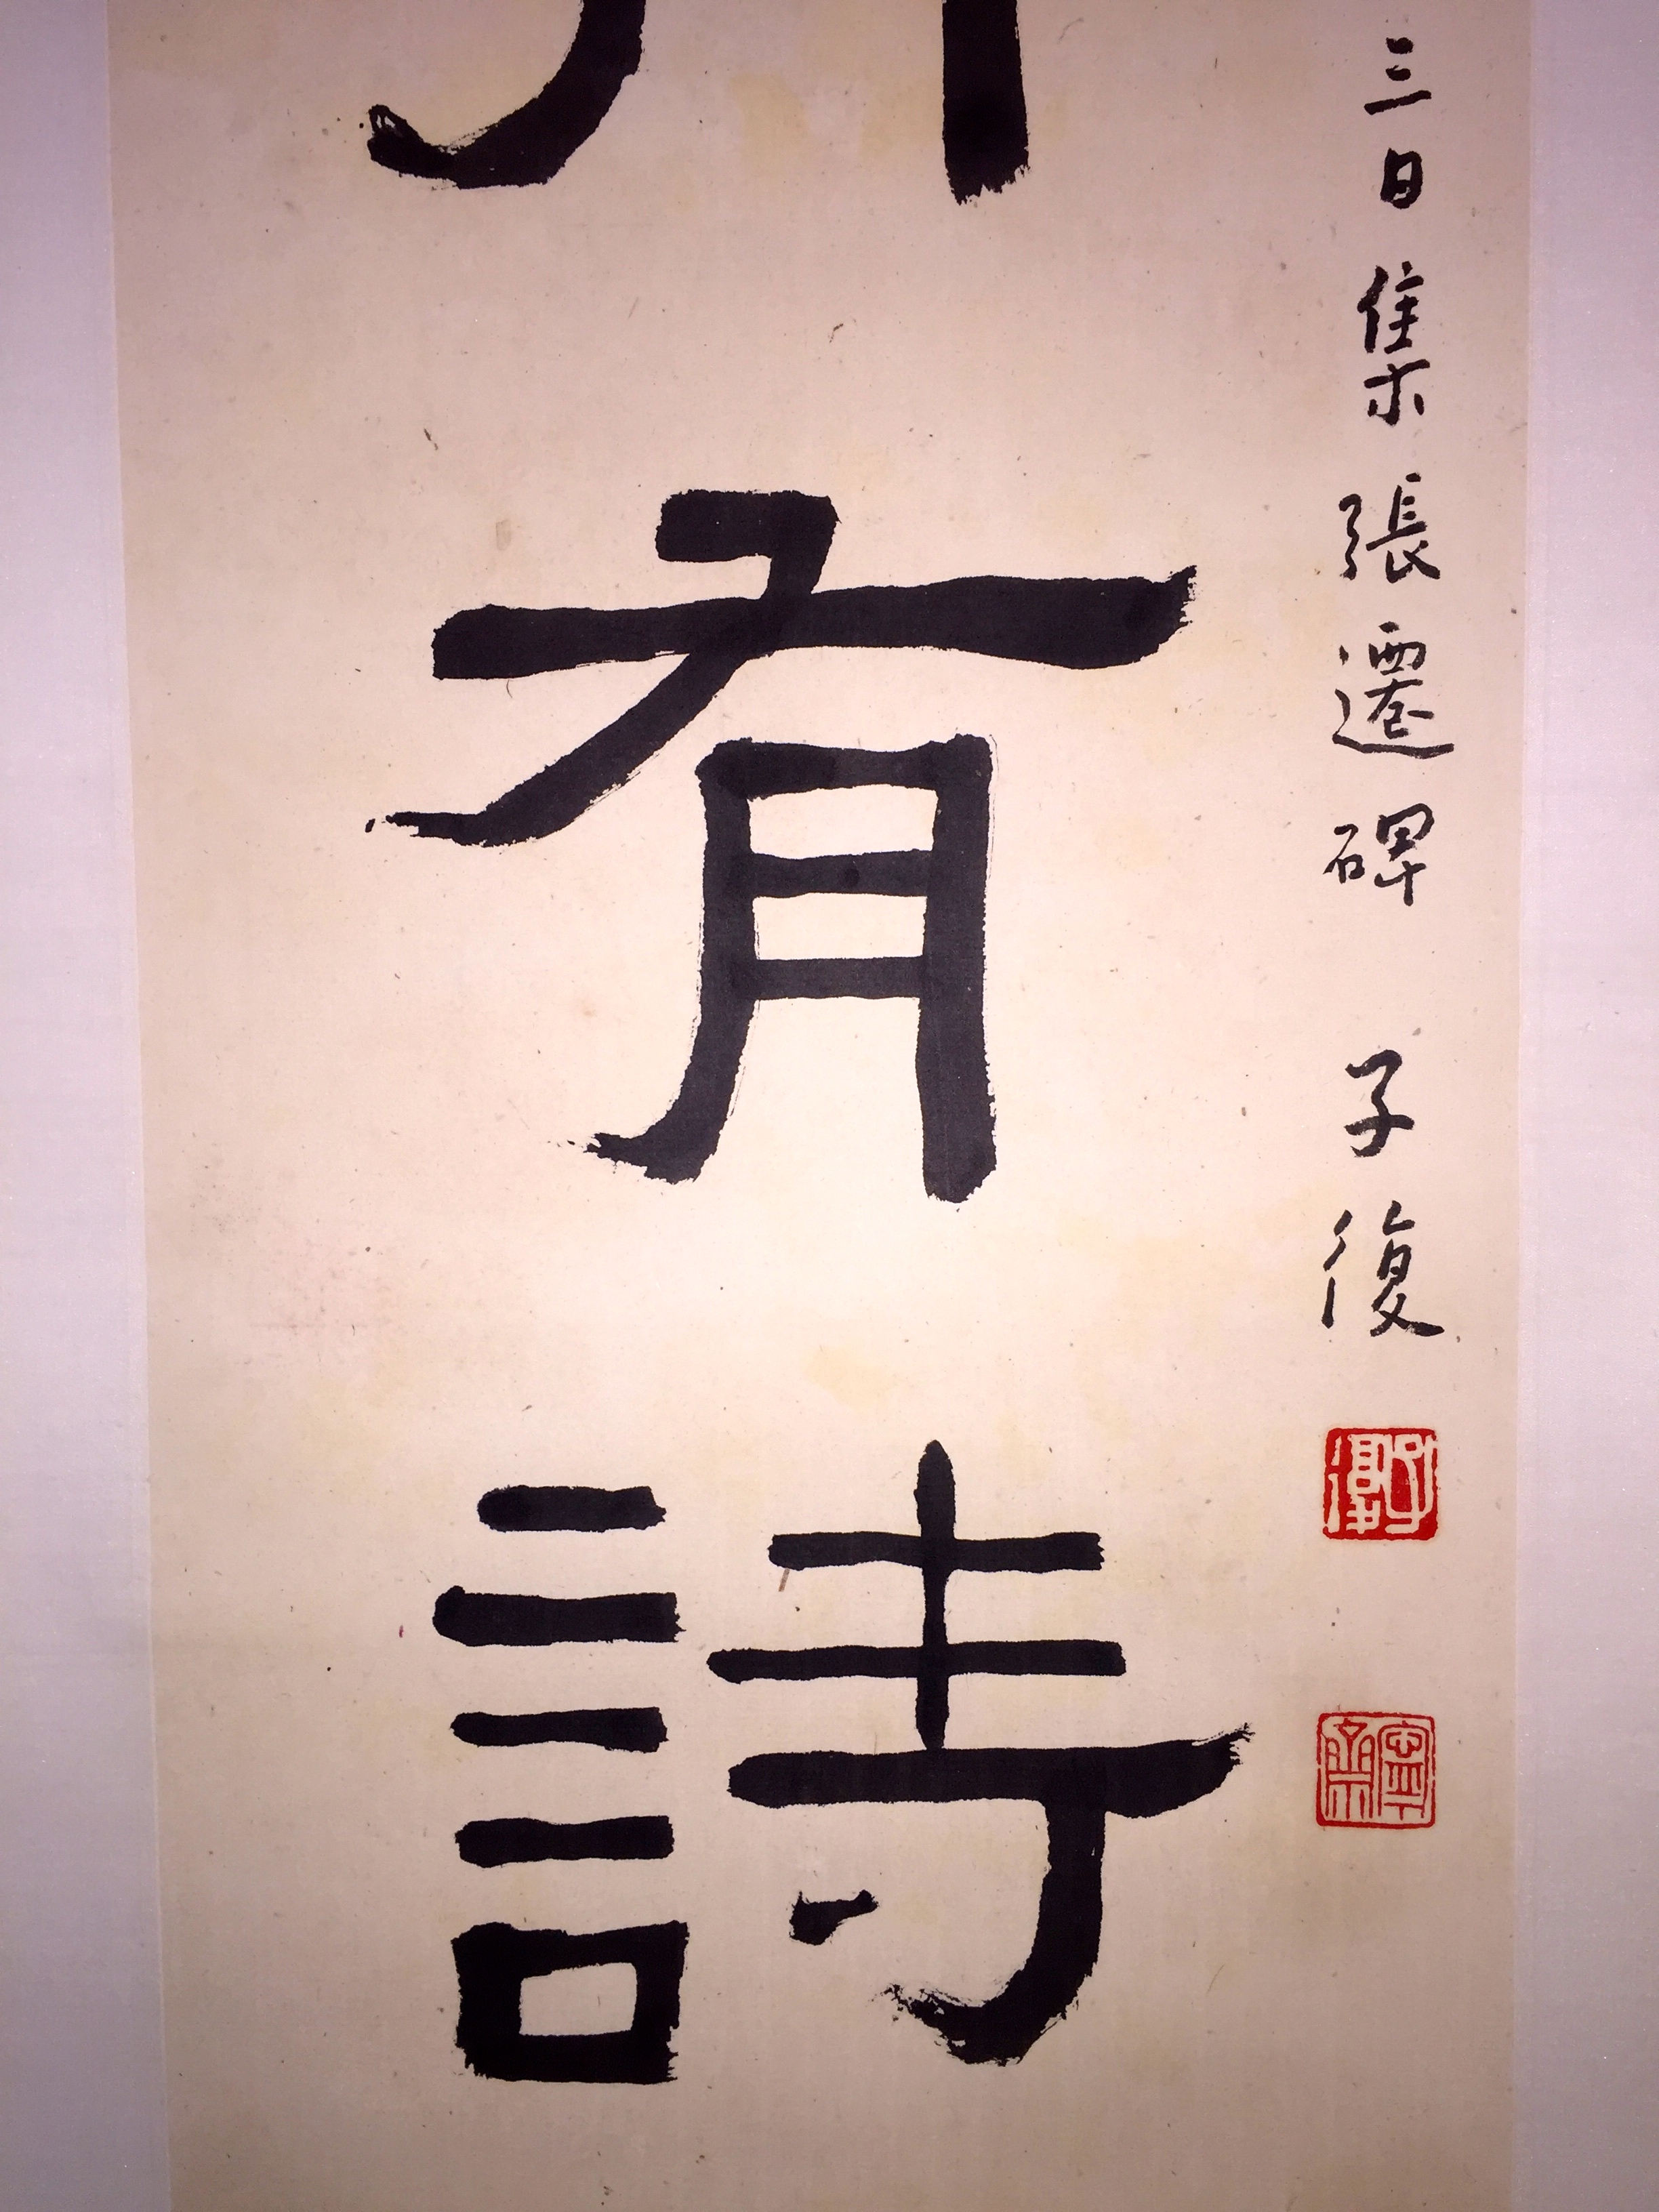 三日集張遷碑 子復
有詩